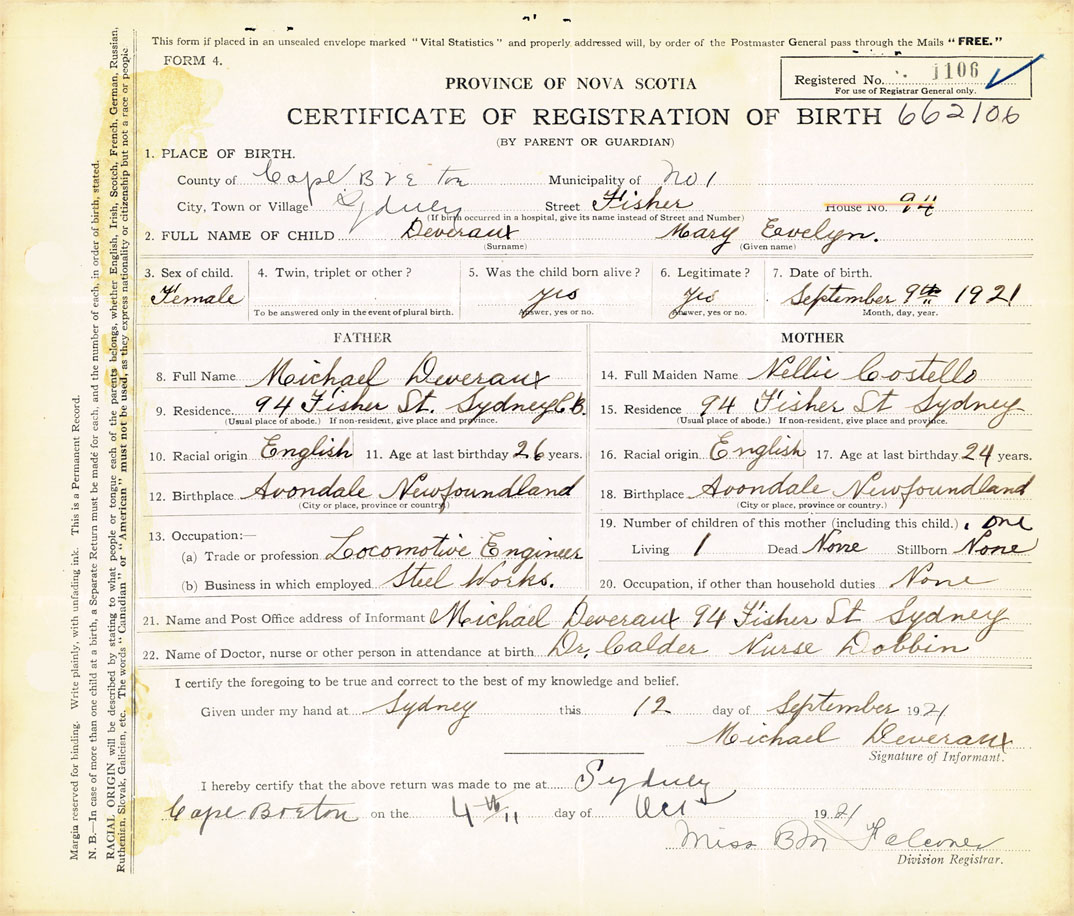 This form if placed in an unsealed envelope marked "Vital Statistics" and properly addressed will, by order of the Postmaster General pass through the Mails "FREE."
FORM 4.
Registered No. 1106
For use of Registrar General only.
PROVINCE OF NOVA SCOTIA
CERTIFICATE OF REGISTRATION OF BIRTH 662106
(BY PARENT OR GUARDIAN)
1. PLACE OF BIRTH.
County of Cape Breton Municipality of No 1
City, Town or Village Sydney Street Fisher House No. 94
(If birth occurred in a hospital, give its name instead of Street and Number)
2. FULL NAME OF CHILD Deveraux Mary Evelyn.
(Surname) (Given name)
3. Sex of child. 4. Twin, triplet or other? 5. Was the child born alive? 6. Legitimate? 7. Date of birth.
Female yes Yes September 9th 1921
To be answered only in the event of plural birth. Answer, yes or no. Answer, yes or no. Month, day, year.
FATHER
8. Full Name Michael Deveraux
9. Residence. 94 Fisher St. Sydney C.B.
(Usual place of abode.) If non-resident, give place and province.
10. Racial origin English 11. Age at last birthday 26 years.
12. Birthplace Avondale Newfoundland
(City or place, province or country.)
13. Occupation:—
(a) Trade or profession Locomotive Engineer
(b) Business in which employed Steel Works.
MOTHER
14. Full Maiden Name Nellie Costello
15. Residence 94 Fisher St Sydney
(Usual place of abode.) If non-resident, give place and province.
16. Racial origin English 17. Age at last birthday 24 years.
18. Birthplace Avondale Newfoundland
(City or place, province or country.)
19. Number of children of this mother (including this child.) one
Living 1 Dead None Stillborn None
20. Occupation, if other than household duties None
21. Name and Post Office address of Informant Michael Deveraux 94 Fisher St Sydney
22. Name of Doctor, nurse or other person in attendance at birth Dr. Calder Nurse Dobbin
I certify the foregoing to be true and correct to the best of my knowledge and belief.
Given under my hand at Sydney this 12 day of September 1921
Michael Deveraux
Signature of Informant.
I hereby certify that the above return was made to me at Sydney
Cape Breton on the 4th day of Oct 1921
Miss B M Falconer
Division Registrar.
Margin reserved for binding. Write plainly, with unfading ink. This is a Permanent Record.
N. B.—In case of more than one child at a birth, a Separate Return must be made for each, and the number of each, in order of birth, stated.
RACIAL ORIGIN will be described by stating to what people or tongue each of the parents belongs, whether English, Irish, Scotch, French, German, Russian,
Ruthenian, Slovak, Galician, etc. The words "Canadian" or "American" must not be used, as they express nationality or citizenship but not a race or people